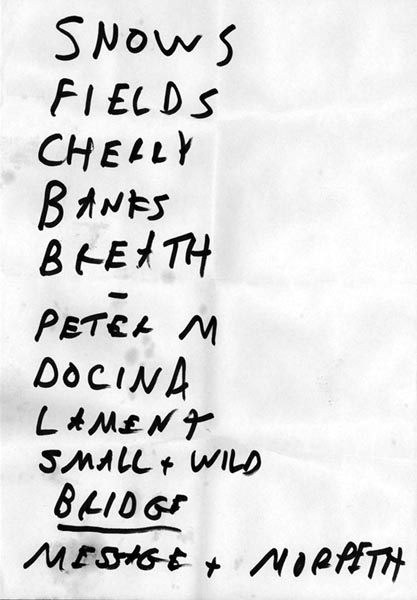 SNOWS
FIELDS
CHERRY
BANKS
BREATH
–
PETER M
DOCINA
LAMENT
SMALL + WILD
BRIDGE
MESSAGE + MORPETH